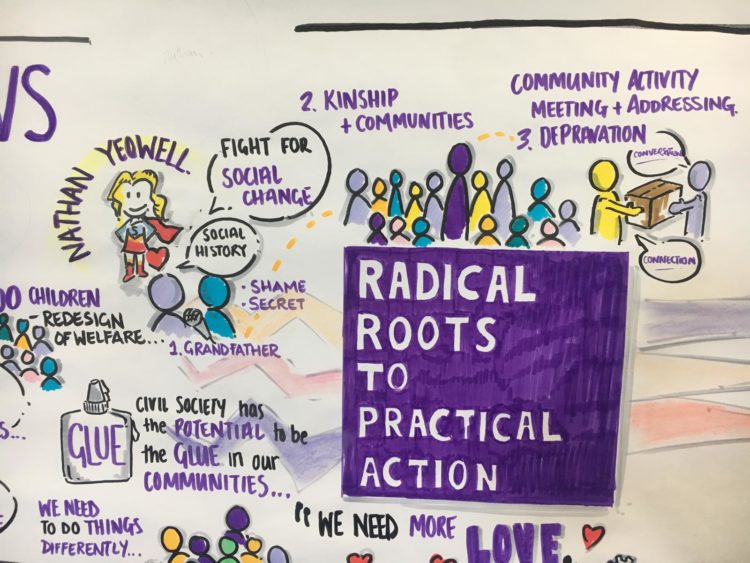 WS
NATHAN YEOWELL.
FIGHT FOR
SOCIAL
CHANGE
SOCIAL
HISTORY
• SHAME
• SECRET
1. GRANDFATHER
2. KINSHIP
+ COMMUNITIES
COMMUNITY ACTIVITY
MEETING + ADDRESSING.
3. DEPRAVATION
CONVERSATION
CONNECTION
00 CHILDREN
- REDESIGN
OF WELFARE...
RADICAL
ROOTS
TO
PRACTICAL
ACTION
GLUE
CIVIL SOCIETY has
the POTENTIAL to be
the GLUE in our
COMMUNITIES...
S...
WE NEED
TO DO THINGS
DIFFERENTLY...
"WE NEED MORE
LOVE